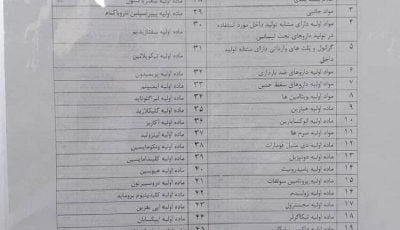 ۳ مواد جانبی
۴ مواد اولیه دارای مشابه تولید داخل مورد استفاده در تولید داروهای تحت لیسانس
۵ گرانول و پلت های وارداتی دارای مشابه تولید داخل
۶ مواد اولیه داروهای ضد بارداری
۷ مواد اولیه داروهای سقط جنین
۸ مواد اولیه ویتامین ها
۹ مواد اولیه هپارین
۱۰ مواد اولیه انوکساپارین
۱۱ مواد اولیه سرم ها
۱۲ ماده اولیه دی متیل فومارات
۱۳ ماده اولیه دونپزیل
۱۴ ماده اولیه پامیدرونیت
۱۵ ماده اولیه پروتامین سولفات
۱۶ ماده اولیه زولپیدم
۱۷ ماده اولیه مجسترول
۱۸ ماده اولیه تیکاگرلر
۱۹
۲۹ ماده اولیه پیپراسیلین/تازوباکتام
۳۰ ماده اولیه سفتازیدیم
۳۱ ماده اولیه تیکوپلانین
۳۲ ماده اولیه پریمیدون
۳۳ ماده اولیه ایمی‌پنم
۳۴ ماده اولیه
۳۵ ماده اولیه گلیکلازید
۳۶ ماده اولیه آکاربز
۳۷ ماده اولیه لینزولید
۳۸ ماده اولیه ونکومایسین
۳۹ ماده اولیه کلیندامایسین
۴۰ ماده اولیه هیوسین
۴۱ ماده اولیه دزوسپیرنون
۴۲ ماده اولیه کلیدینیوم بروماید
۴۳ ماده اولیه اپی نفرین
۴۴ ماده اولیه
۴۵ ماده اولیه